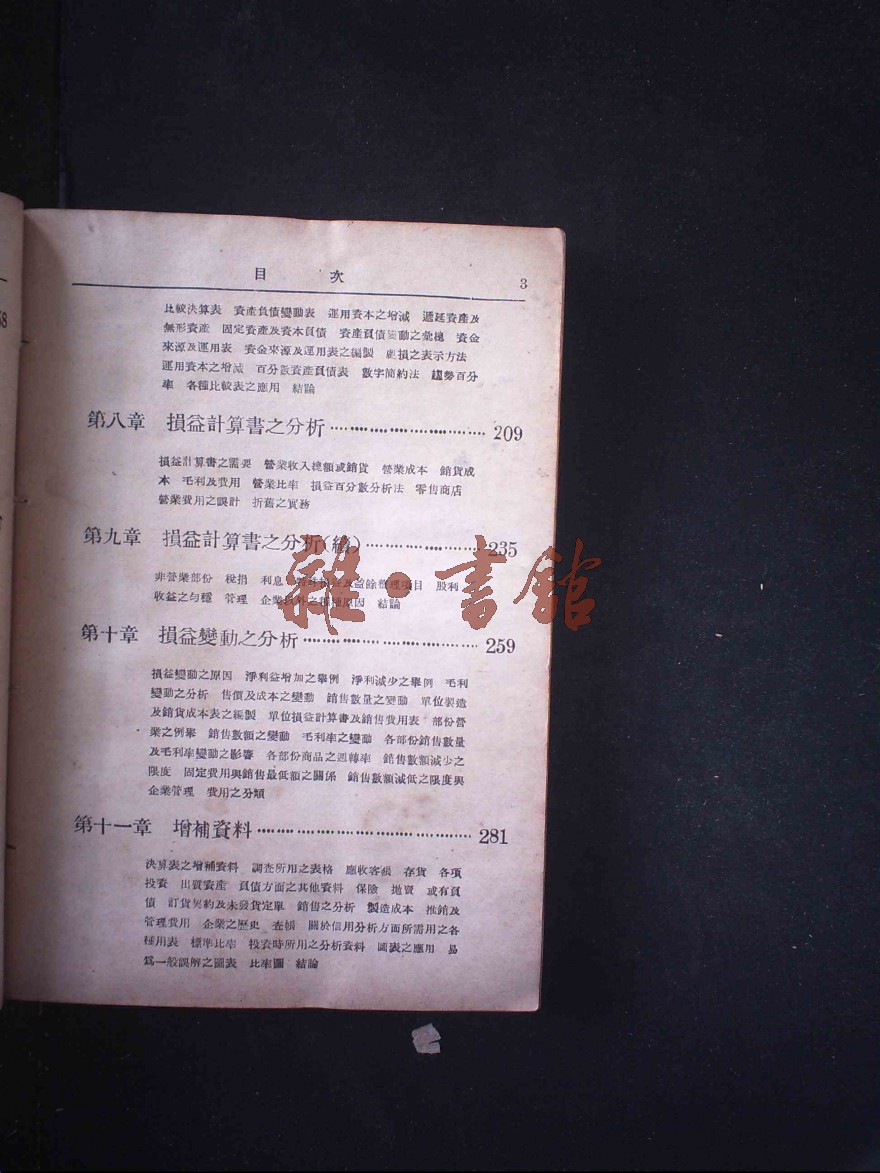 目 次 3
比較決算表 資產負債變動表 運用資本之增減 遞延資產及
無形資產 固定資產及資本負債 資產負債變動之彙總 資金
來源及運用表 資金來源及運用表之編製 虧損之表示方法
運用資本之增減 百分數資產負債表 數字簡約法 趨勢百分
率 各種比較表之應用 結論
第八章 損益計算書之分析 209
損益計算書之需要 營業收入總額或銷貨 營業成本 銷貨成
本 毛利及費用 營業比率 損益百分數分析法 零售商店
營業費用之誤計 折舊之實務
第九章 損益計算書之分析(續) 235
非營業部份 稅捐 利息 損益及盈餘整理項目 股利
收益之勻穩 管理 企業以外之種種原因 結論
第十章 損益變動之分析 259
損益變動之原因 淨利益增加之舉例 淨利減少之舉例 毛利
變動之分析 售價及成本之變動 銷售數量之變動 單位製造
及銷貨成本表之編製 單位損益計算書及銷售費用表 部份營
業之例案 銷售數額之變動 毛利率之變動 各部份銷售數量
及毛利率變動之影響 各部份商品之週轉率 銷售數額減少之
限度 固定費用與銷售最低額之關係 銷售數額減低之限度與
企業管理 費用之分類
第十一章 增補資料 281
決算表之增補資料 調查所用之表格 應收客賬 存貨 各項
投資 出質資產 負債方面之其他資料 保險 拋賣 或有負
債 訂貨契約及未發貨定單 銷售之分析 製造成本 推銷及
管理費用 企業之歷史 查帳 關於信用分析方面所需用之各
種用表 標準比率 投資時所用之分析資料 圖表之應用 易
爲一般誤解之圖表 比率圖 結論
雜·書館